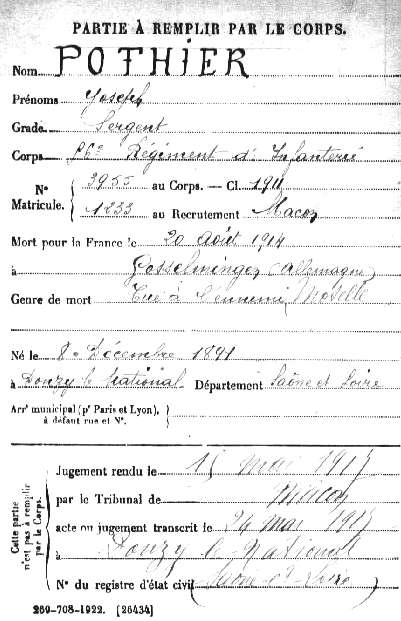 PARTIE À REMPLIR PAR LE CORPS.
Nom POTHIER
Prénoms Joseph
Grade Sergent
Corps Régiment d'Infanterie
N° Matricule. 3955 au Corps. — Cl. 1911
1233 au Recrutement Macon
Mort pour la France le 20 Août 1914
à Gosselminger (Allemagne)
Genre de mort Tué à l'ennemi Moselle
Né le 8 Décembre 1891
à Donzy le National Département Saône et Loire
Arrt municipal (pr Paris et Lyon),
à défaut rue et N°.
Cette partie n'est pas à remplir par le Corps.
Jugement rendu le 15 mai 1917
par le Tribunal de Mâcon
acte ou jugement transcrit le 24 mai 1917
à Donzy le National
N° du registre d'état civil (Saône et Loire)
269-708-1922. [26434]